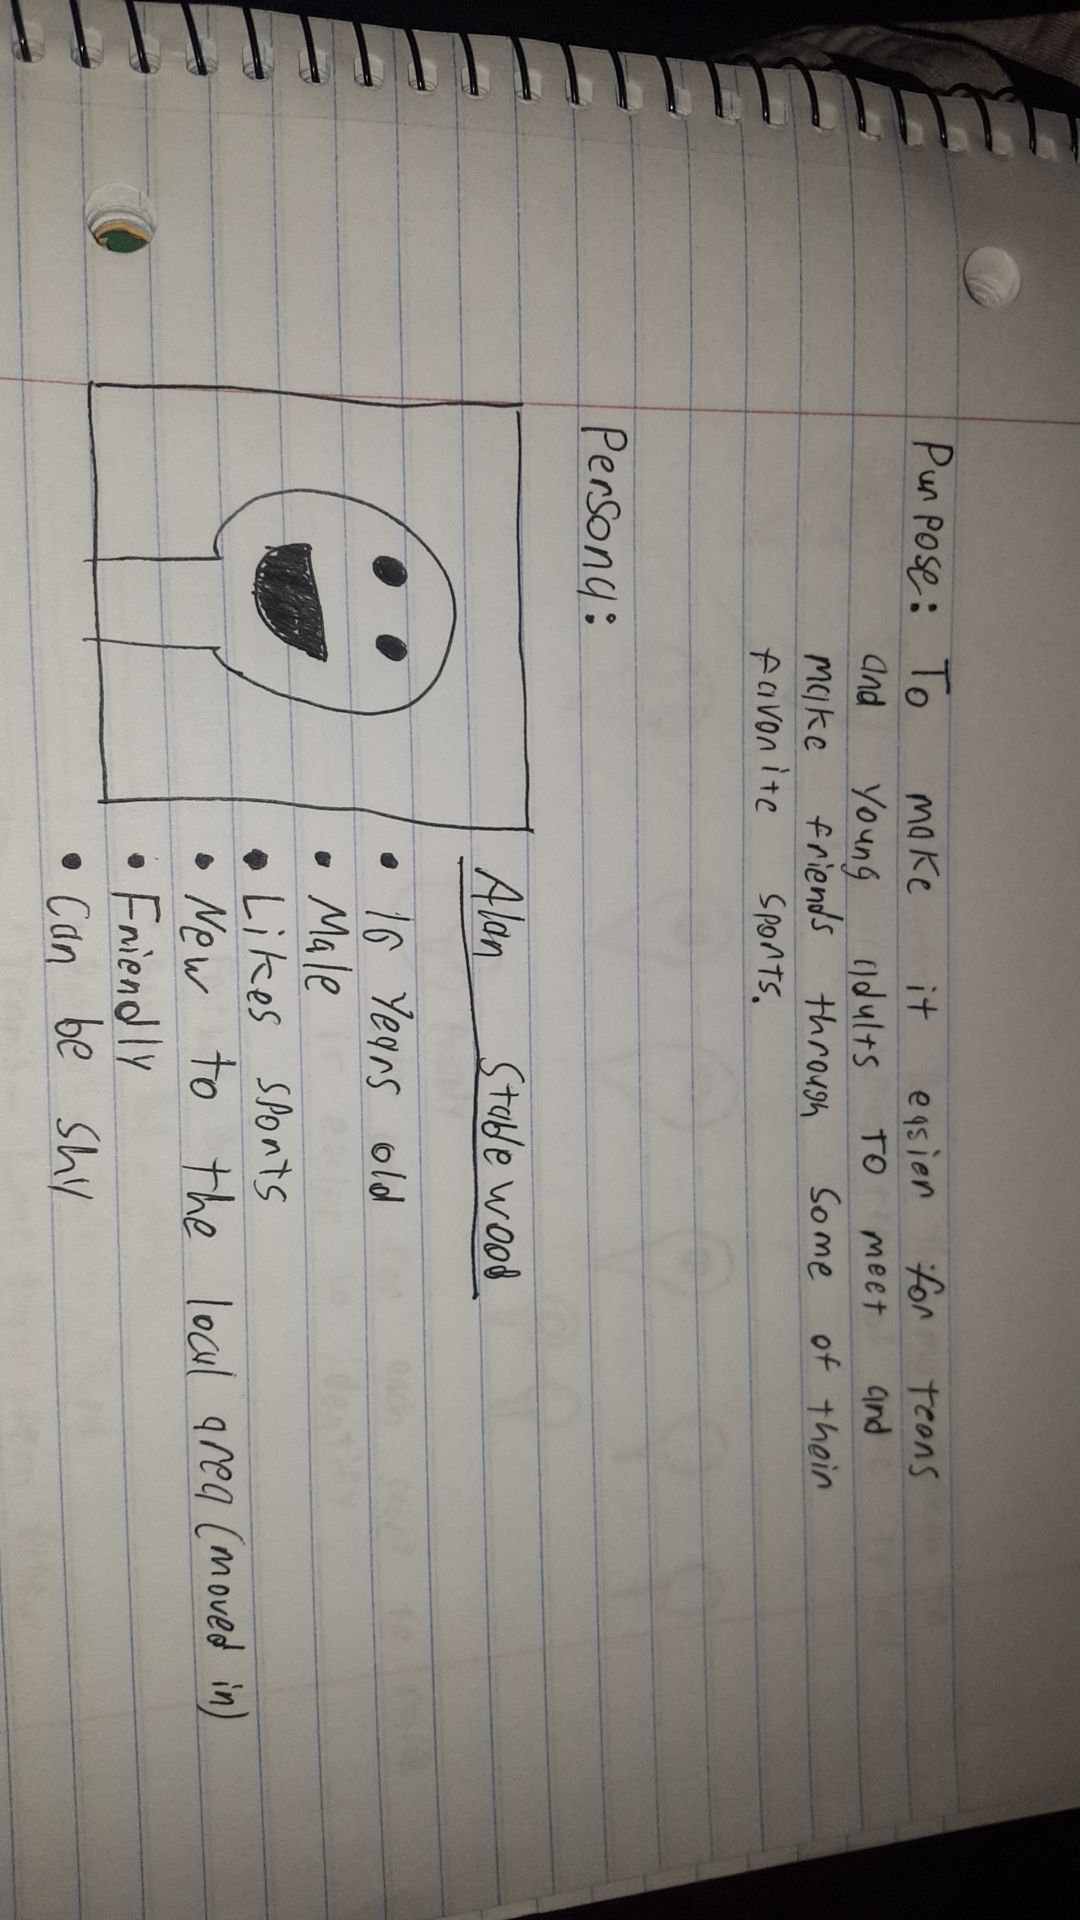 Purpose: To make it easier for teens
and young adults to meet and
make friends through some of their
favorite sports.
Persona:
Alan Stablewood
• 16 years old
• Male
• Likes sports
• New to the local area (moved in)
• Friendly
• Can be shy